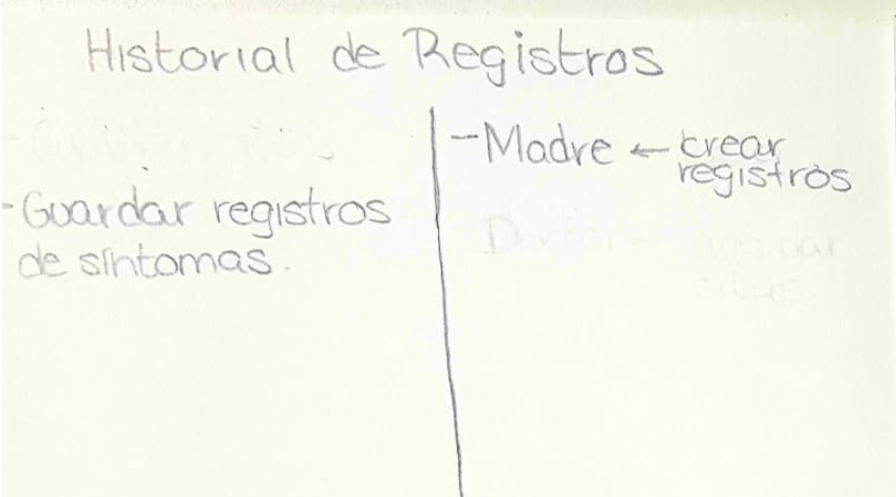 Historial de Registros
- Guardar registros
de síntomas.
- Madre ← crear
registros